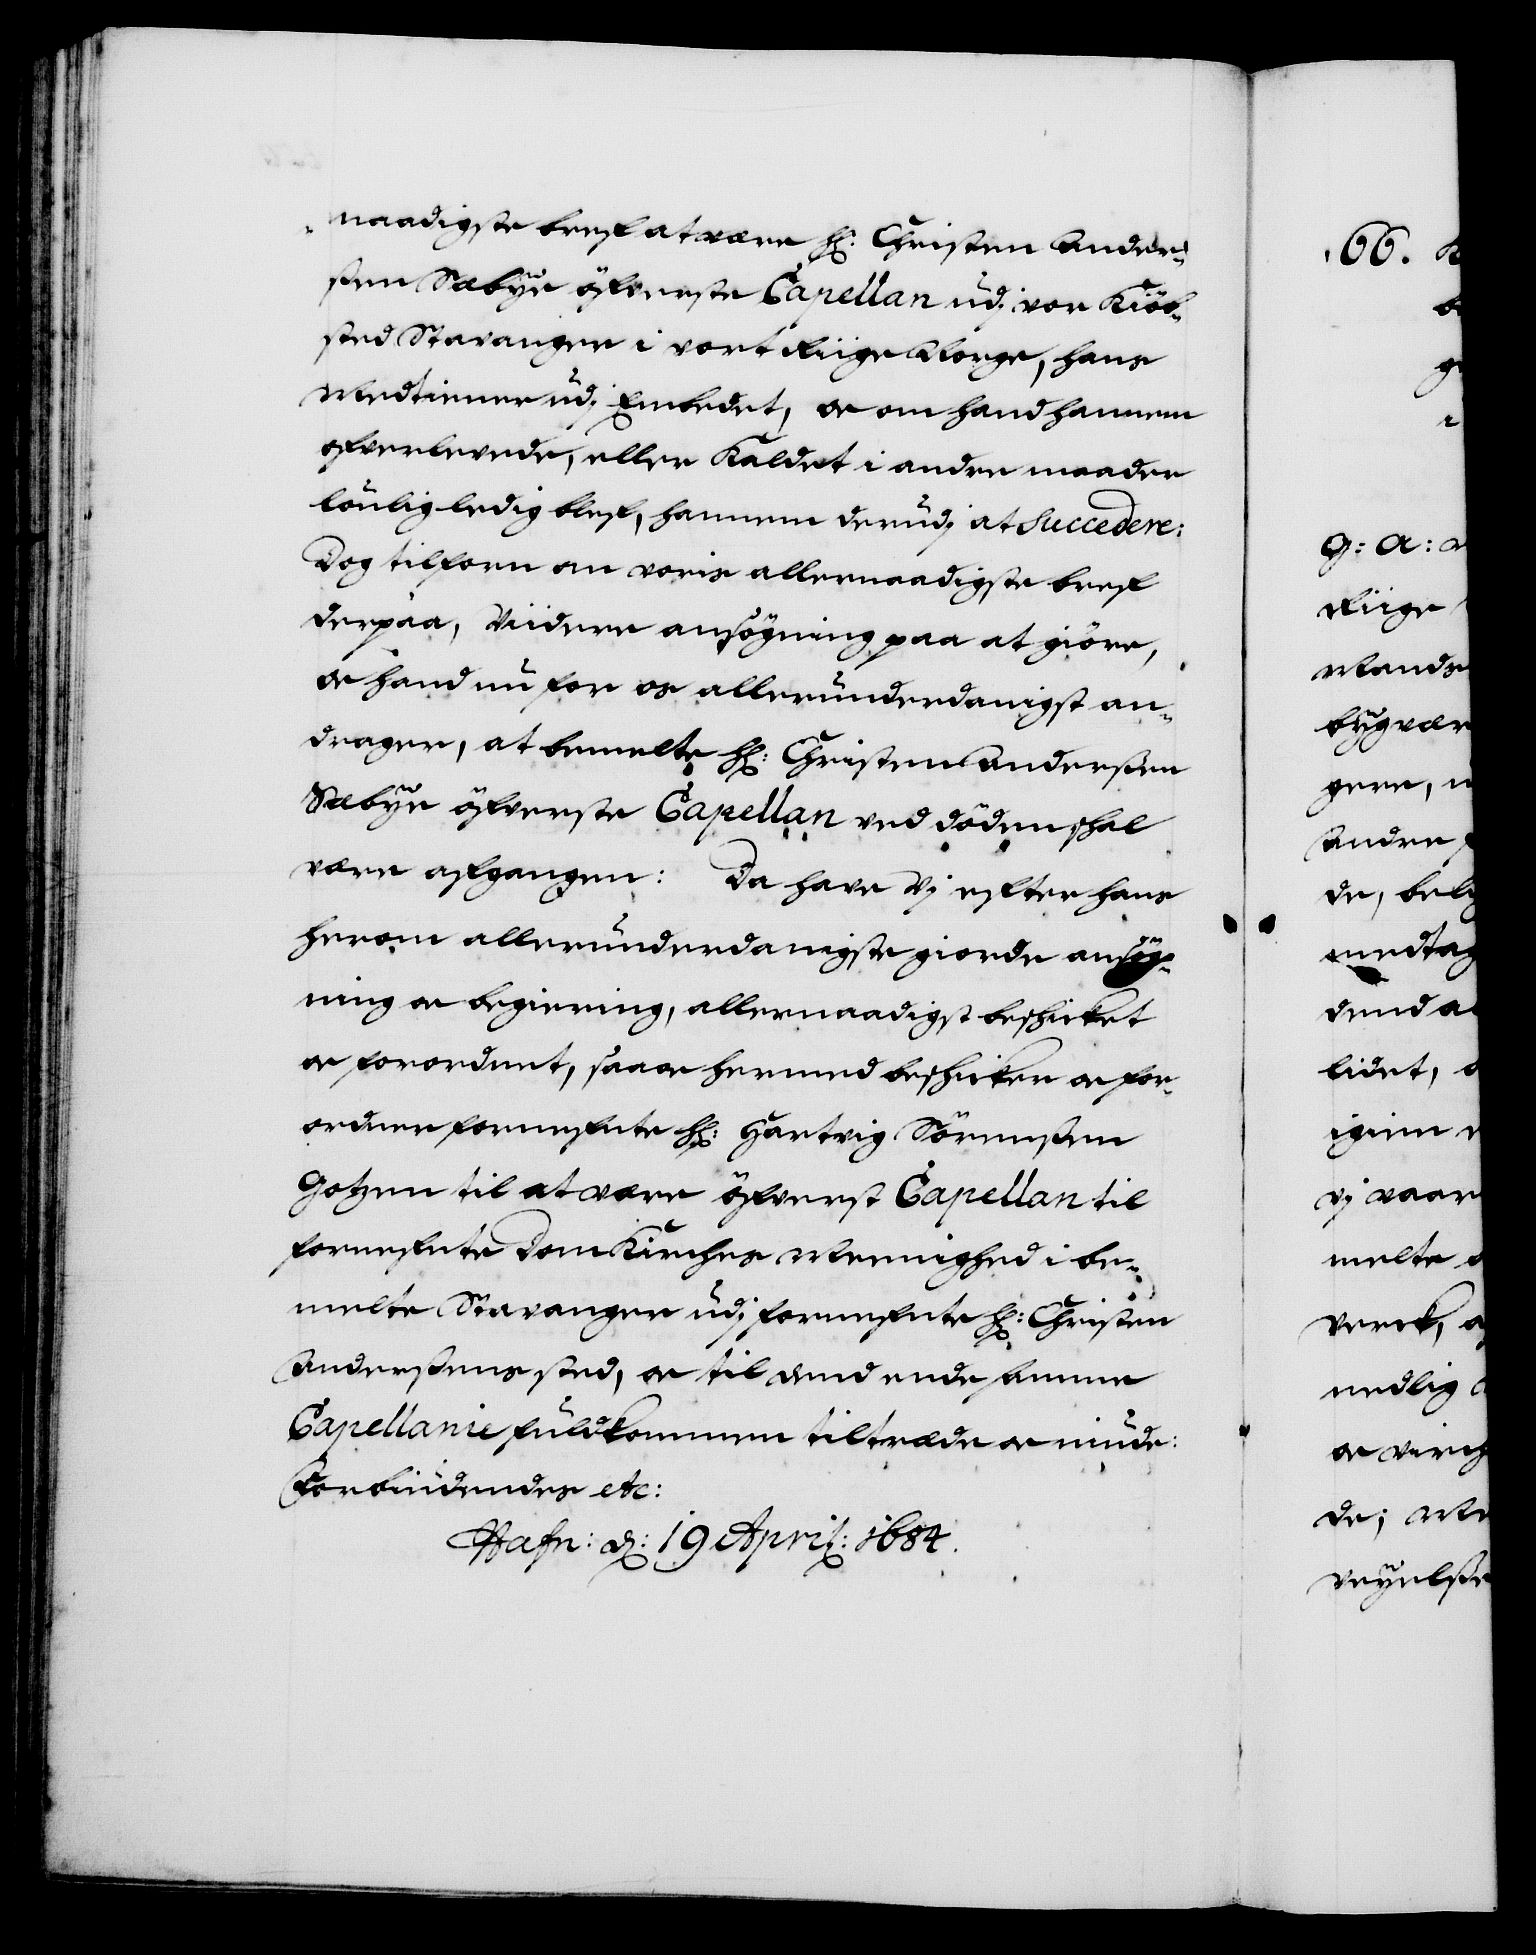 naadigste bref at være hr: Christen Ander-
sen Sæbye öfverste Capellan udj vor Kiöb-
sted Stavanger i vort Riige Norge, hans
Medtiener udj Embedet, oc om hand hannem
ofverlevede, eller Kaldet i andre maader
loulig ledig blef, hannem derudj at Succedere:
Dog tilforn om voris allernaadigste bref
derpaa, Viidere ansøgning paa at giöre,
oc hand nu for os allerunderdanigst an-
drager, at bemelte hr: Christen Anderssen
Sæbye öfverste Capellan ved döden skal
være afgangen: Da have Vj efter hans
herom allerunderdanigste giorde ansög-
ning oc begiering, allernaadigst beskicket
oc forordnet, saa oc hermed beskicker oc for-
ordner fornefnte hr: Hartvig Sörenssen
Gotzen til at være öfverst Capellan til
fornefnte Dom Kirches Meenighed i be-
melte Stavanger udj fornefnte hr: Christen
Anderssens sted, oc til dend ende samme
Capellanie fuldkommen tiltræde oc niude:
Forbiudendes etc:
Hafn: d: 19 April: 1684.
66.
G: A:
Riige
Mands
bygver
gere,
Andre
de,
medtag
dend
lidet,
igien
vj vaar
melte
verck,
nedlig
oc
de;